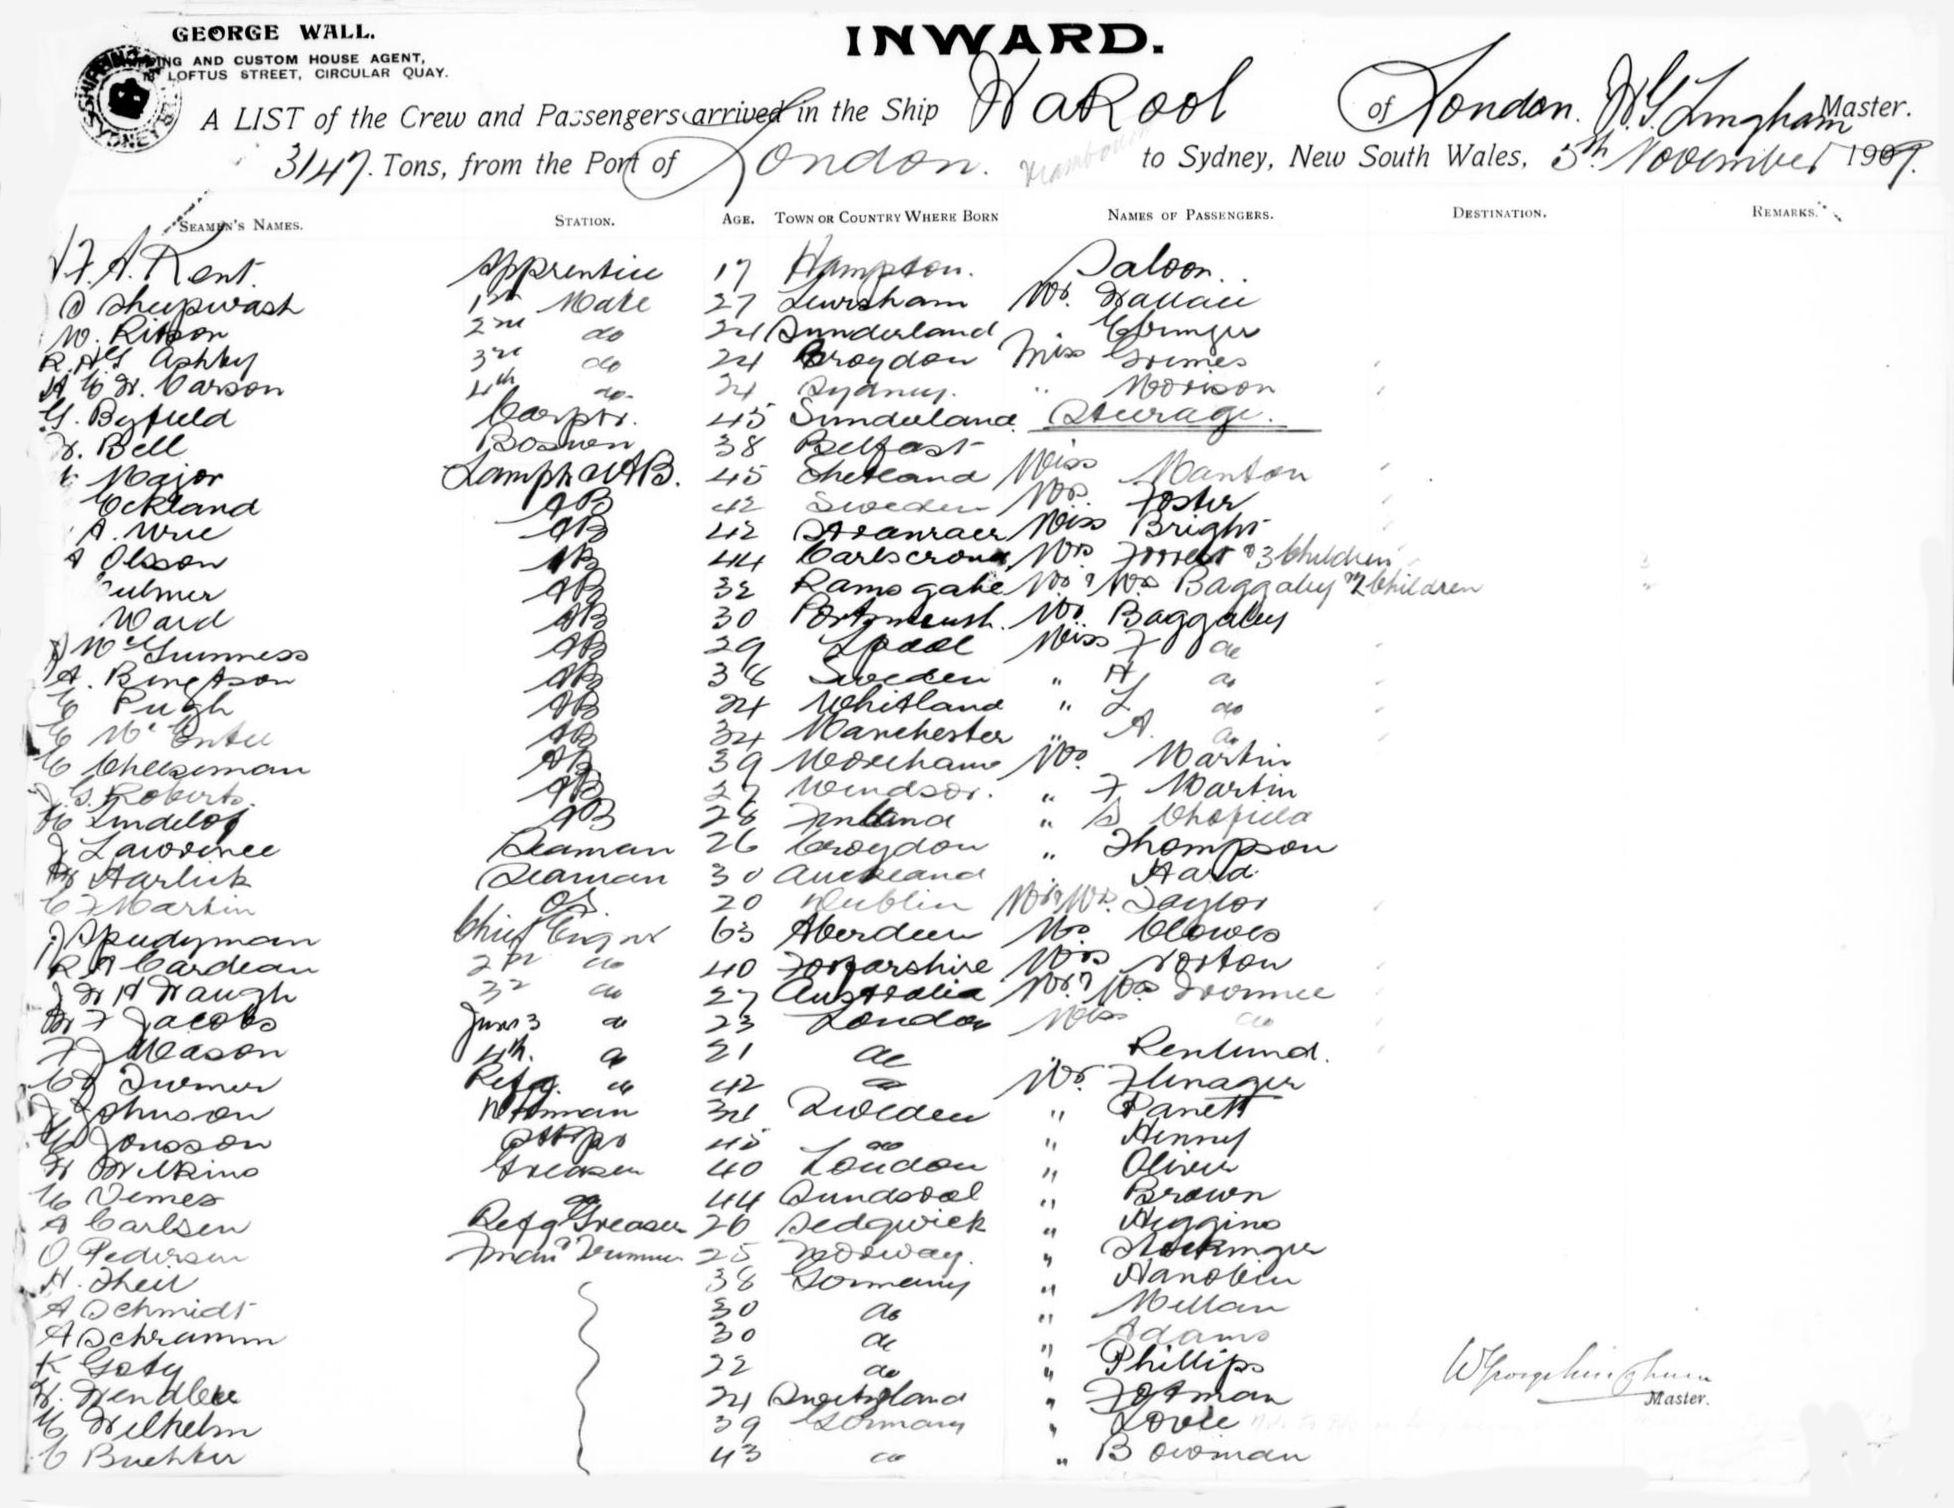 GEORGE WALL.
INWARD.
AND CUSTOM HOUSE AGENT,
LOFTUS STREET, CIRCULAR QUAY.
A LIST of the Crew and Passengers arrived in the Ship Wakool of London. W. G. Lingham Master.
3147. Tons, from the Port of London. to Sydney, New South Wales, 5th November 1909.
SEAMEN'S NAMES. STATION. AGE. TOWN OR COUNTRY WHERE BORN NAMES OF PASSENGERS. DESTINATION. REMARKS.
A. Kent. Apprentice 17 Hampton. Saloon.
Sheepwash 1st Mate 27 Lewisham Mr. Wallace
W. Ritson 2nd do 24 Sunderland
Ashby 3rd do 24 Croydon Miss Grimes
Carson 4th do 24 Sydney. " Morison
G. Byfield Carptr. 45 Sunderland Steerage.
W. Bell Boswn 38 Belfast
Major Lamps & AB. 45 Shetland Miss Manton
Eckland AB 42 Sweden Mrs Foster
A. Wrie AB 42 Stranraer Miss Bright
A Olsson AB 44 Carlscrona Mrs Forrest & 3 Children
AB 32 Ramsgate Mr & Mrs Baggaley & 2 Children
Ward AB 30 Portsmouth. Mr. Baggaley
J McGuinness AB 29 Lpool Miss F do
A. Bengtson AB 38 Sweden " H do
C Pugh AB 24 Whitland " L do
AB 34 Manchester " A. do
C Cheeseman AB 39 Morehams Mr. Martin
G. Roberts. AB 27 Windsor. " F Martin
Lindelof AB 28 Finland " S Chofield
J Lawrence Seaman 26 Croydon " Thompson
W Harlick Seaman 30 Auckland Hard
C F Martin OS 20 Dublin Mr & Mrs. Taylor
J Spudyman Chief Engnr 63 Aberdeen Mrs Clowes
R A Cardean 2nd do 40 Forfarshire Mrs Norton
J W H Waugh 3rd do 27 Australia Mr. & Mrs
W F Jacobs Junr 3 do 23 London Miss do
F J Mason 4th. do 21 do Renlund.
C J Turner Refg. do 42 do Mr.
J Johnson 34 Sweden " Panett
C Jonsson 45 do " Henny
W Wilkins Greaser 40 London " Oliver
C Vemes do 44 Sundsval " Brown
A Carlsen Refg Greaser 26 Sedgwick " Higgins
O Pedersen Fman & Trimmer 25 Norway.
H. Theil 38 Germany
A Schmidt 30 do " Mellan
A Schramm 30 do " Adams
K Goty 22 do " Phillips
W. Wendler 24 Switzland " Fotman
C Wilhelm 39 Germany "
C Buehler 43 do " Bowman
Master.